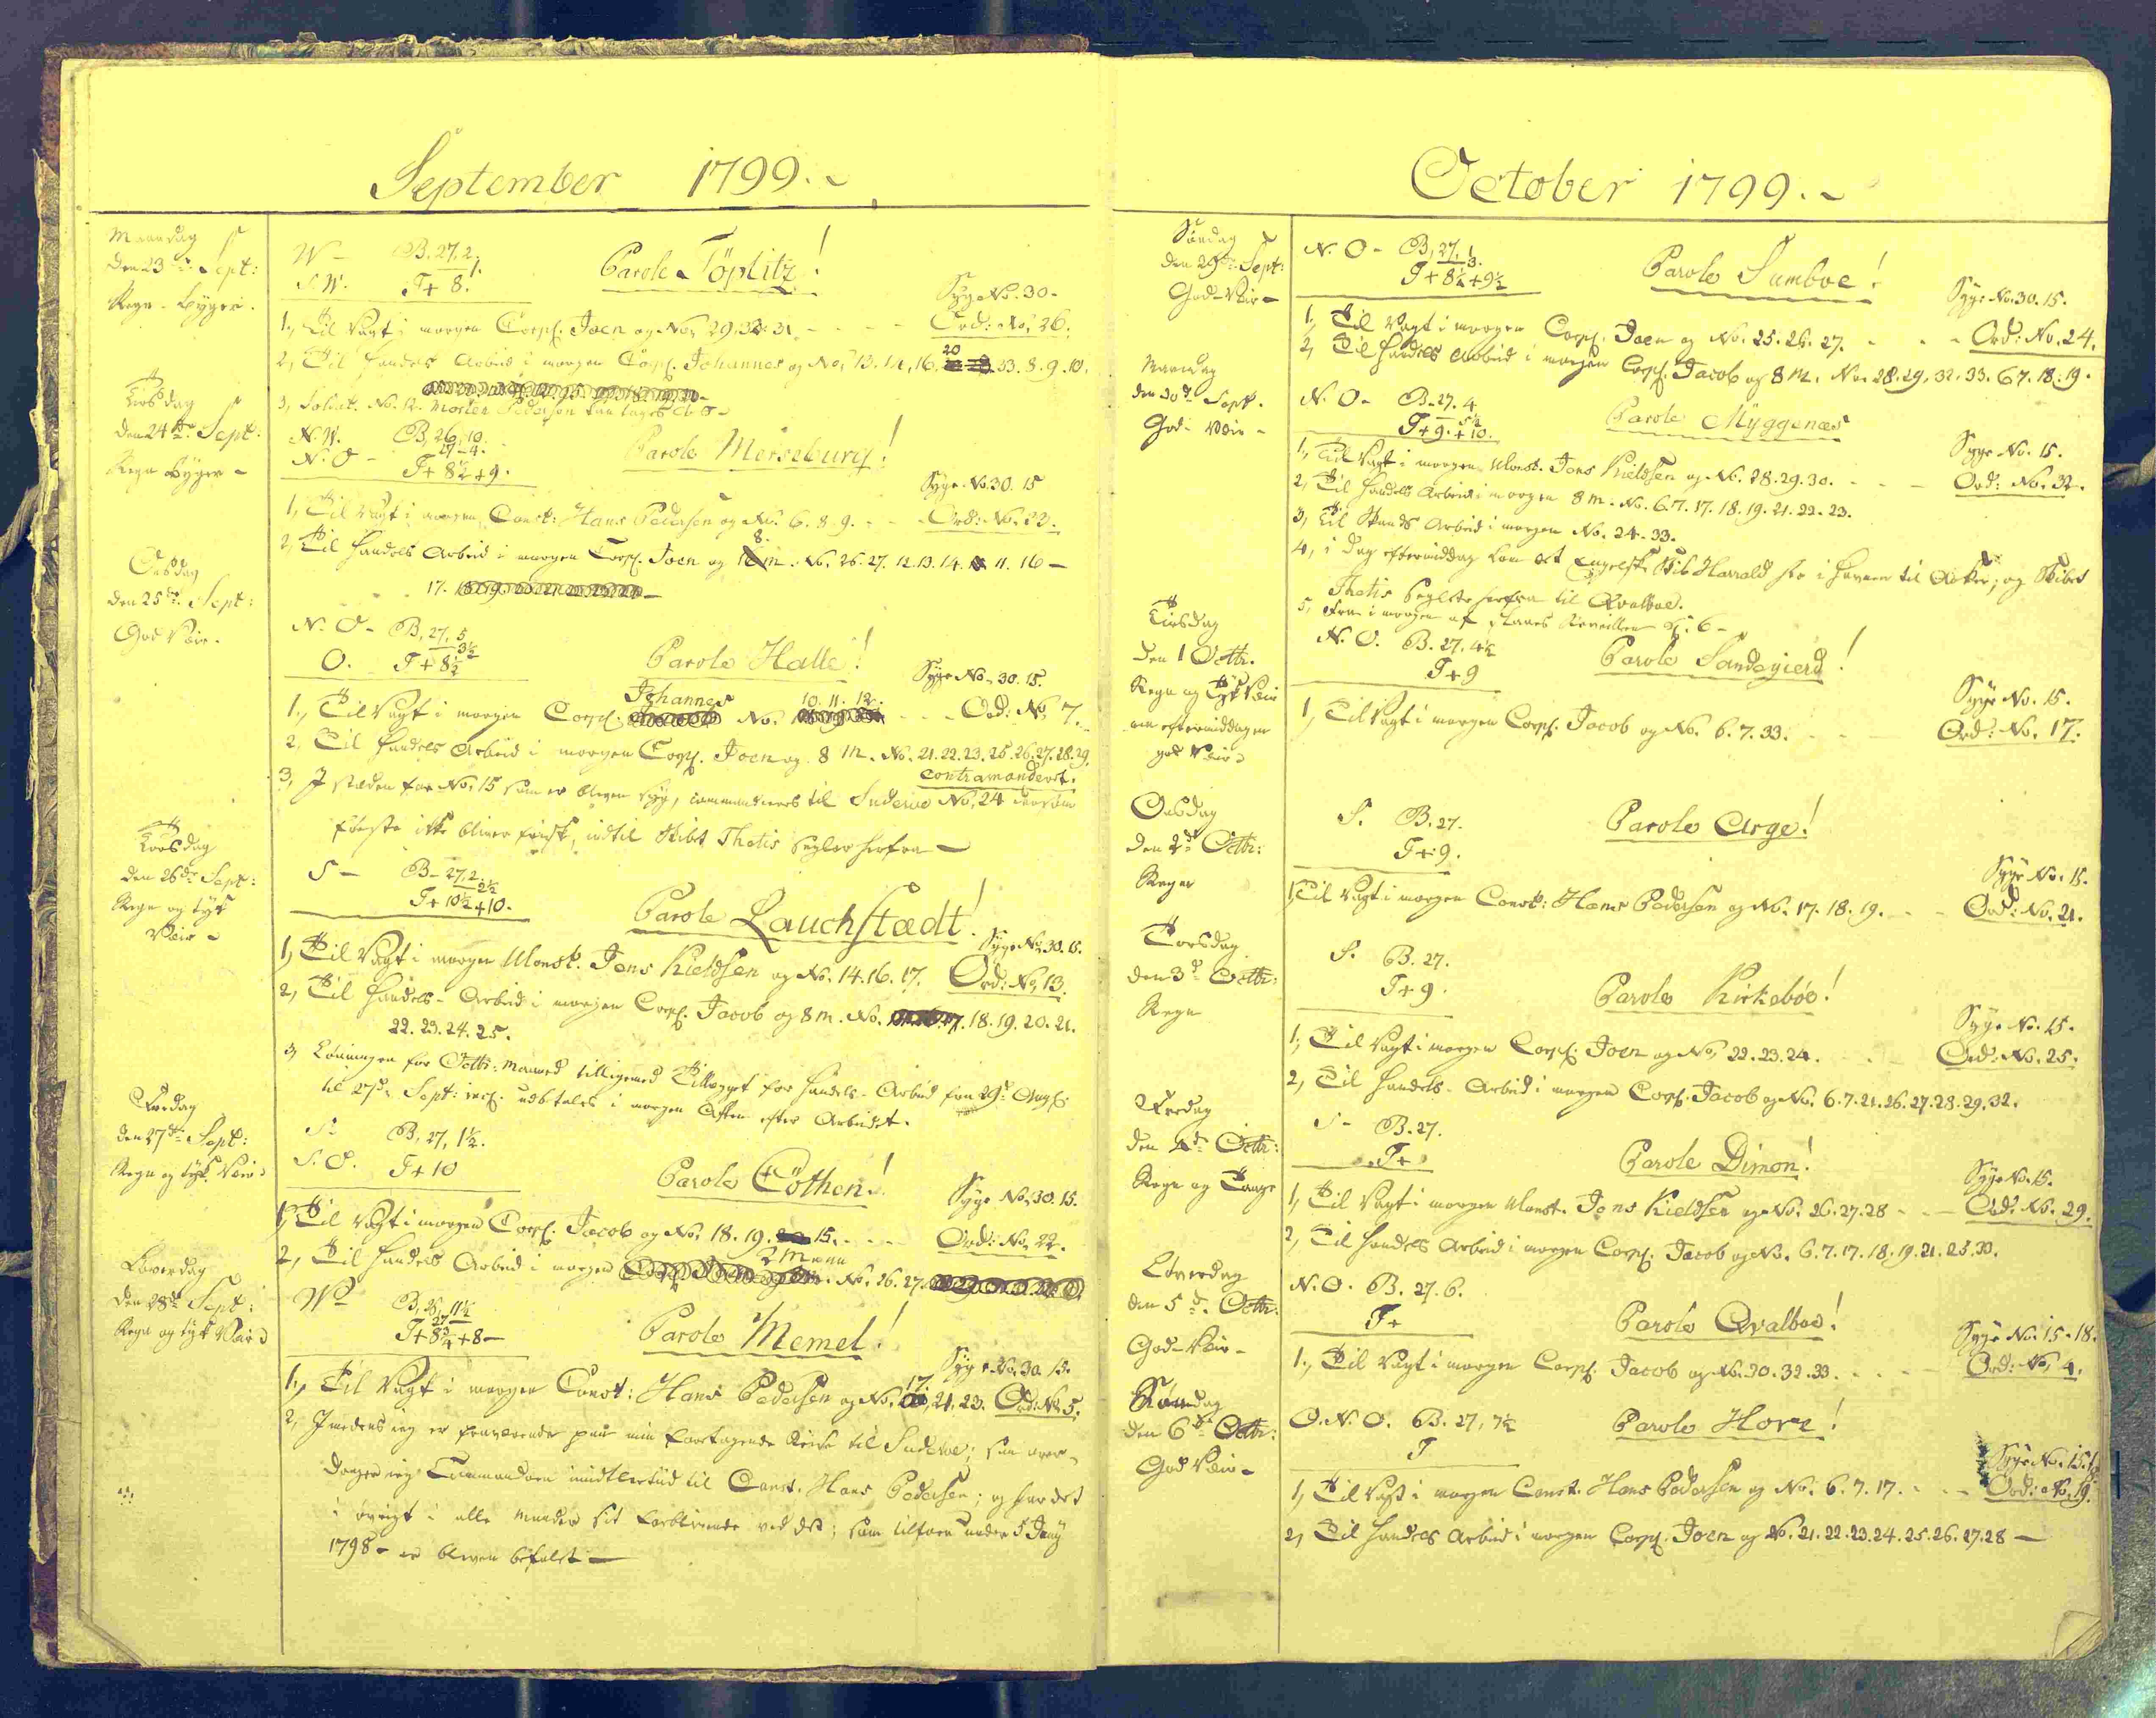 September 1799.
Mandag
den 23de Sept:
Regn-Byger.
W - B. 27. 2.
S.W. T+ 8. 1.
Parole Töplitz!
Syge No. 30 -
1, Til Vagt i morgen Corpl. Joen og No. 29. 32. 31. - - - - Ord: No. 26.
2, Til Handels Arbeid i morgen Corpl. Johannes og No. 13. 14. 16. 20 33. 8. 9. 10.
3, Soldat No. 12. Morten Pedersen
Tirsdag
den 24de Sept:
Regn Byger -
N.W. B. 26. 10.
N.O - 27 - 4.
T+ 8½ + 9.
Parole Merseburg!
Syge No. 30. 15
1, Til Vagt i morgen Const: Hans Pedersen og No. 6. 8. 9. - - - Ord: No. 23.
2, Til Handels Arbeid i morgen Corpl. Joen og 8 m. No. 26. 27. 12. 13. 14. 11. 16 -
17.
Onsdag
den 25de Sept:
God Veir.
N.O - B. 27. 5
3½
O. T+ 8½
Parole Halle!
Syge No. 30. 15.
1, Til Vagt i morgen Corpl. Johannes No. 10. 11. 12. - - - Ord: No. 7.
2, Til Handels Arbeid i morgen Corpl. Joen og 8 m. No. 21. 22. 23. 25. 26. 27. 28. 29.
contramanderet.
3, I stæden for No. 15 som er bleven syg, commanderes til Suderöe No. 24 dersom
første ikke bliver frisk, indtil Skibet Thetis segler herfra -
Torsdag
den 26de Sept:
Regn og tyk
Veir -
S - B - 27. 2.
2½
T+ 10½ + 10.
Parole Lauchstædt!
Syge No. 30. 15.
1, Til Vagt i morgen Monst. Jens Kieldsen og No. 14. 16. 17. Ord: No. 13.
2, Til Handels-Arbeid i morgen Corpl. Jacob og 8 m. No. 18. 19. 20. 21.
22. 23. 24. 25.
3, Lönningen for Octbr: Maaned tilligemed Tillægget for Handels-Arbeid fra 29de Aug:
til 27de Sept: incl. udbetales i morgen Aften efter Arbeidet.
Fredag
den 27de Sept:
Regn og tyk Veir
S. B. 27. 1½.
S.O. T+ 10
Parole Cöthen!
Syge No. 30. 15.
1, Til Vagt i morgen Corpl. Jacob og No. 18. 19. 15. - - - Ord: No. 22.
2, Til Handels Arbeid i morgen 2 Mann No. 26. 27.
Löverdag
den 28de Sept:
Regn og tyk Veir
W - B. 26. 11½
27 -
T+ 8¾ + 8 -
Parole Memel!
Syge No. 30. 15.
1, Til Vagt i morgen Const: Hans Pedersen og No. 17, 21. 23. Ord: No. 5.
2, Imedens jeg er fraværende paa min foretagende Reise til Suderöe; saa over-
drager jeg Commandoen imidlertiid til Const. Hans Pedersen; og har det
i övrigt i alle Maader sit Forblivende ved det; som tilforn under 5 Junÿ
1798 - er bleven befalet -
October 1799.
Söndag
den 29de Sept:
God-Veir -
N.O - B. 27. 1
3.
T+ 8¼ + 9½
Parole Sumboe!
Syge No. 30. 15.
1, Til Vagt i morgen Corpl. Joen og No. 25. 26. 27. - - - Ord: No. 24.
2, Til Handels Arbeid i morgen Corpl. Jacob og 8 m. No. 28. 29. 32. 33. 6. 7. 18. 19.
Mandag
den 30te Sept.
God-Veir -
N.O - B. 27. 4
5½
T+ 9. + 10.
Parole Myggenæs
Syge No. 15.
1, Til Vagt i morgen Monst. Jens Kieldsen og No. 28. 29. 30. - - - Ord: No. 32.
2, Til Handels Arbeid i morgen 8 m. No. 6. 7. 17. 18. 19. 21. 22. 23.
3, Til Skands Arbeid i morgen No. 24. 33.
4, i Dag eftermiddag kom det Engelske Skib Harrald her i Havnen til Anker; og Skibet
Thetis seglede herfra til Qvalboe.
5, Fra i morgen af slaaes Reveillen Kl. 6 -
Tirsdag
den 1 Octbr.
Regn og tyk Veir
om eftermiddagen
god Veir
N.O. B. 27. 4½
T+ 9
Parole Sandegierd!
Syge No. 15.
1, Til Vagt i morgen Corpl. Jacob og No. 6. 7. 33. - - - Ord: No. 17.
Onsdag
den 2de Octbr:
Regn
S. B. 27.
T+ 9.
Parole Arge!
Syge No. 15.
1, Til Vagt i morgen Const: Hans Pedersen og No. 17. 18. 19. - - Ord: No. 21.
Torsdag
den 3de Octbr:
Regn
S. B. 27.
T+ 9.
Parole Kirkeböe!
Syge No. 15.
1, Til Vagt i morgen Corpl. Joen og No. 22. 23. 24. - - Ord: No. 25.
2, Til Handels-Arbeid i morgen Corpl. Jacob og No. 6. 7. 21. 26. 27. 28. 29. 32.
Fredag
den 4de Octbr:
Regn og Taage
S - B. 27.
T+
Parole Dimon!
Syge No. 15.
1, Til Vagt i morgen Monst. Jens Kieldsen og No. 26. 27. 28 - - - Ord. No. 29.
2, Til Handels Arbeid i morgen Corpl. Jacob og No. 6. 7. 17. 18. 19. 21. 25. 30.
Löverdag
den 5de Octbr:
God-Veir -
N.O. B. 27. 6.
T+
Parole Qvalboe!
Syge No. 15 - 18.
1, Til Vagt i morgen Corpl. Jacob og No. 30. 32. 33. - - - Ord: No. 4.
Söndag
den 6te Octbr:
God Veir -
O.N.O. B. 27. 7½
T
Parole Hove!
Syge No. 15.
1, Til Vagt i morgen Const. Hans Pedersen og No. 6. 7. 17. - - - Ord: No. 19.
2, Til Handels Arbeid i morgen Corpl. Joen og No. 21. 22. 23. 24. 25. 26. 27. 28 -